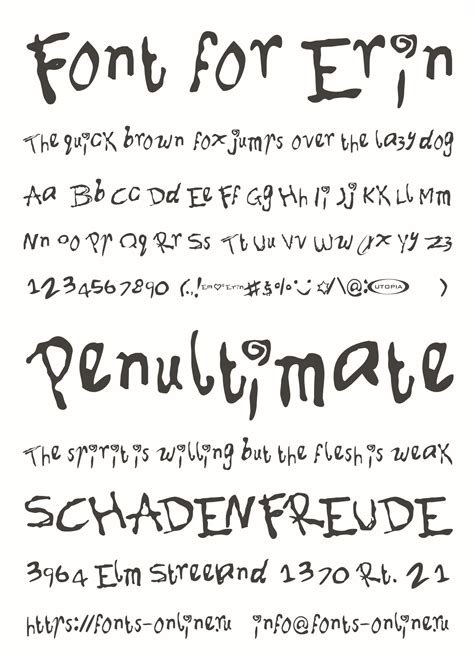 Font for Erin
The quick brown fox jumps over the lazy dog
Aa Bb Cc Dd Ee Ff Gg Hh Ii Jj Kk Ll Mm
Nn Oo Pp Qq Rr Ss Tt Uu Vv Ww Xx Yy Zz
1234567890 (.,!Em♡'s Erin#$%^:)☆/\@:UTOPIA )
Penultimate
The spirit is willing but the flesh is weak
SCHADENFREUDE
3964 Elm Streeand 1370 Rt. 21
https://fonts-online.ru info@fonts-online.ru